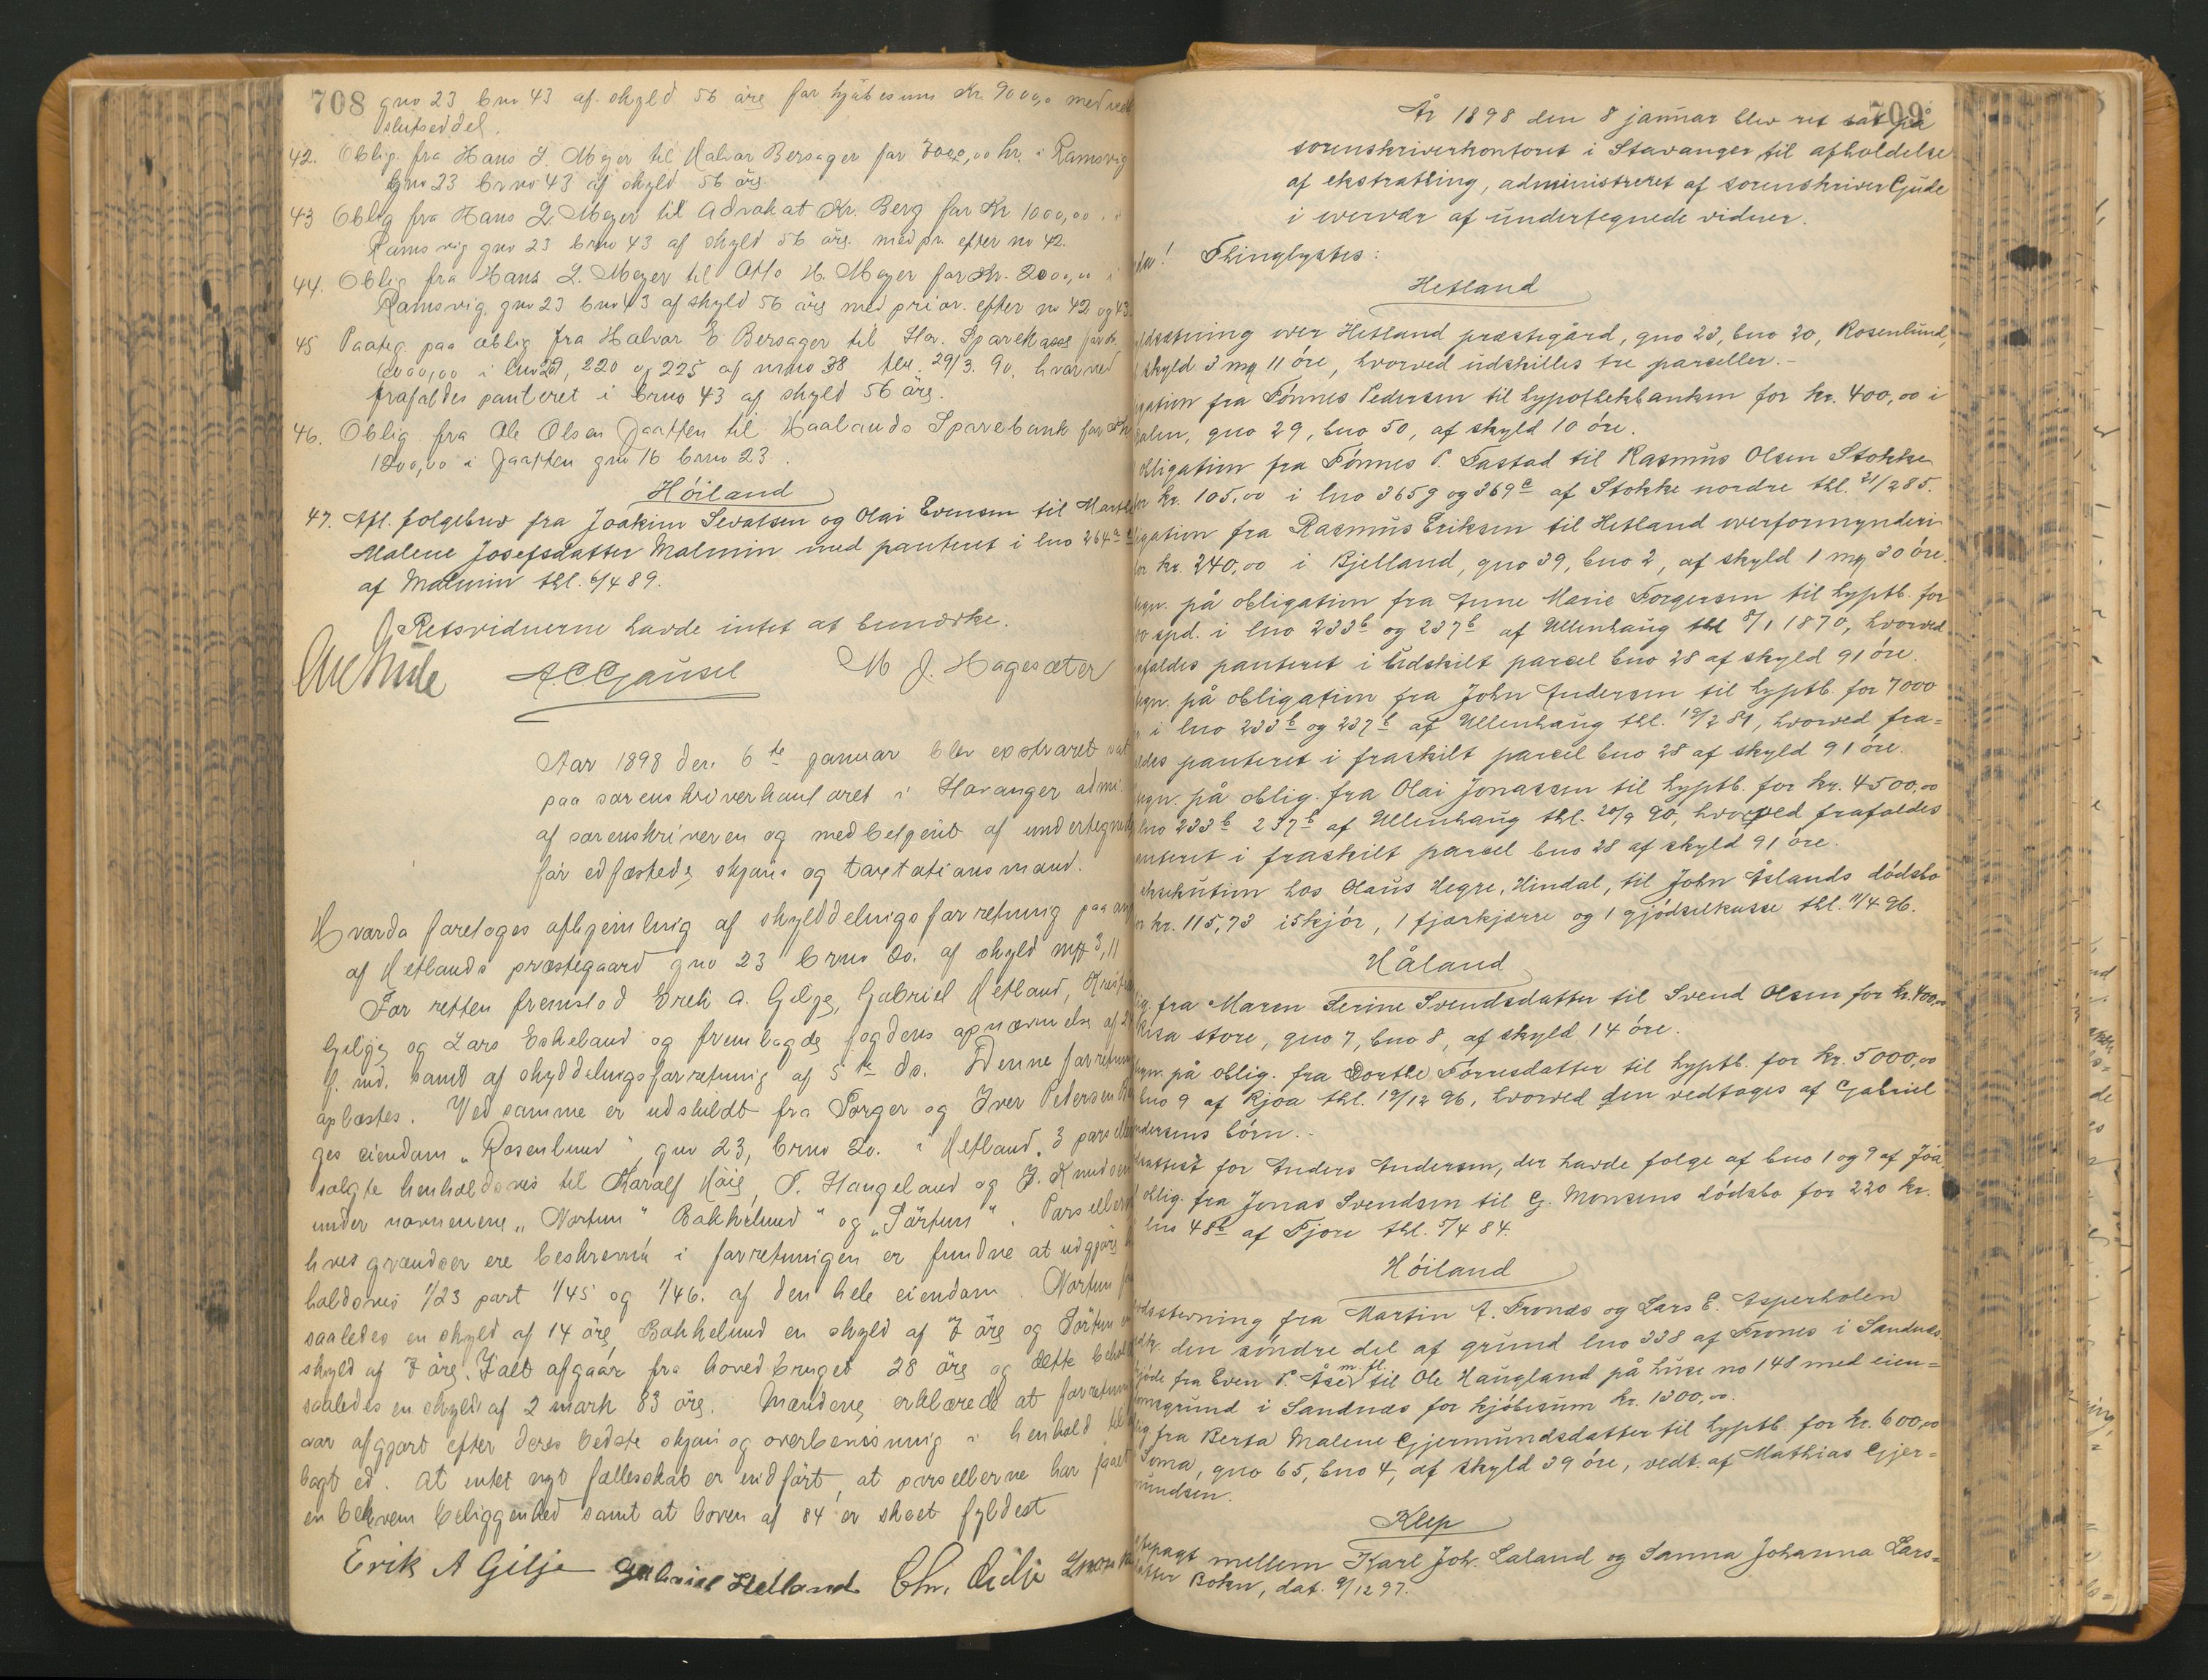 708 gno 23 bno 43 af skyld 56 øre for kjøbesum Kr. 9000,00 med ved
slutseddel.
42. Oblig. fra Hans L. Meyer til Halvor Bersager for 7000,00 kr. i Ramsvig
gno 23 brno 43 af skyld 56 øre
43 Oblig fra Hans L. Meyer til Advokat Kr. Berg for Kr 1000,00 i
Ramsvig gno 23 brno 43 af skyld 56 øre. med pr. efter no 42.
44. Oblig fra Hans L. Meyer til Otto H. Meyer for Kr. 2000,00 i
Ramsvig gno 23 bno 43 af skyld 56 øre med prior. efter no 42 og 43.
45 Paateg. paa oblig fra Halvor E Bersager til Stav. Sparekasse for kr.
6000,00 i lno 220 og 225 af mno 38 tlst. 29/3. 90. hvorved
frafaldes panteret i brno 43 af skyld 56 øre.
46. Oblig fra Ole Olsen Jaatten til Haalands Sparebank for Kr
1200,00 i Jaatten gno 16 brno 23.
Höiland
47. Afl. folgebrev fra Joakim Sevatsen og Olai Evensen til Marthe
Malene Josefsdatter Malmin med panteret i lno 264a
af Malmin thl. 6/4 89.
Retsvidnerne havde intet at bemærke.
A.C. Gausel M J. Hagesæter
Aar 1898 den 6te januar blev extraret sat
paa sorenskriverkontoret i Stavanger admi.
af sorenskriveren og med betjent af undertegnede
før edfæstede skjøns og taxtationsmænd.
Hvorda foretoges afhjemling af skylddelingsforretning paa
af Hetlands præstegaard gno 23 brno 20. af skyld mk 3,11
For retten fremstod Erik A. Gilje, Gabriel Hetland,
Gilje og Lars Eskeland og fremlagde fogdens opnævnelse af
f. md. samt af skyddelingsforretning af 5te ds. Denne forretning
oplæstes. Ved samme er udskildt fra Torger og Iver Petersen
ges eiendom "Rosenlund", gno 23, brno 20. i Hetland, 3 parseller
solgte henholdsvis til Karalf Höie, T. Haugeland og J. Knudsen
under navnene "Nortun" "Bakkelund" og "Sörtun". Parsellerne
hves grændser ere beskrevne i forretningen er fundne at udgjøre
holdsvis 1/23 part 1/45 og 1/46. af den hele eiendom. Nortun
saaledes en skyld af 14 øre, Bakkelund en skyld af 7 øre og Sörtun en
skyld af 7 øre. I alt afgaar fra hovedbruget 28 øre og dette
saaledes en skyld af 2 mark 83 øre. Mændene erklærede at forretning
var afgjort efter deres bedste skjøn og overbevisning i henhold til
lagt ed. At intet nyt fællesskab er indført, at parsellerne har faaet
en bekvem beliggenhed samt at loven af 84 er skeet fyldest
Erik A Gilje Gabriel Hetland Chr. Gilje
709
År 1898 den 8 januar blev ret sat på
sorenskriverkontoret i Stavanger til afholdelse
af ekstratting, administreret af sorenskriver Gjude
i overvær af undertegnede vidner.
Thinglystes:
Hetland
deling over Hetland præstegård, gno 23, bno 20, Rosenlund,
skyld 3 mq 11 öre, hvorved udskilles tre parceller.
gation fra Tönnes Pedersen til hypothekbanken for kr. 400,00 i
dalen, gno 29, bno 50, af skyld 10 öre.
obligation fra Tönnes P. Tastad til Rasmus Olsen Stokke
for kr. 105,00 i lno 365g og 369c af Stokke nordre thl. 21/2 85.
igation fra Rasmus Eriksen til Hetland overformynderi
for kr. 240,00 i Bjelland, gno 39, bno 2, af skyld 1 mq 30 öre.
tegn. på obligation fra Anne Marie Torgersen til hyptb. for
00 spd. i lno 233b og 237b af Ullenhaug thl 8/1 1870, hvorved
frafaldes panteret i udskilt parcel bno 28 af skyld 91 öre.
tegn. på obligation fra John Andersen til hyptb. for 7000
i lno 233b og 237b af Ullenhaug thl. 19/2 81, hvorved fra=
faldes panteret i fraskilt parcel bno 28 af skyld 91 öre.
tegn. på oblig. fra Olai Jonassen til hyptb. for kr. 4500,00
lno 233b 237b af Ullenhaug thl. 20/9 90, hvorved frafaldes
panteret i fraskilt parcel bno 28 af skyld 91 öre.
eksekution hos Olaus Hegre, Hindal, til John Åslands dödsbo
for kr. 115,73 i 5 kjör, 1 fjærkjærre og 1 gjödselkasse thl. 11/4 96.
Håland
fra Maren Serine Svendsdatter til Svend Olsen for kr. 400,00
store, gno 7, bno 8, af skyld 14 öre.
tegn. på oblig. fra Dorthe Torresdatter til hyptb. for kr. 5000,00
bno 9 af Kjoa thl. 19/12 96, hvorved den vedtages af Gabriel
Andersens börn.
attest for Anders Andersen, der havde folge af bno 1 og 9 af Joa.
oblig. fra Jonas Svendsen til G. Monsens dödsbo for 220 kr.
lno 48b af Tjore thl. 5/4 84.
Höiland
fra Martin A. Trones og Lars E. Asperholen
den söndre del af grund lno 338 af Trones i Sandnæs
skjöde fra Even P. Åse m. fl. til Ole Haugland på huse no 148 med eien=
domsgrund i Sandnæs for kjöbesum kr. 1300,00.
fra Berta Malene Gjermundsdatter til hyptb. for kr. 600,00
Soma, gno 65, bno 4, af skyld 39 öre, vedt. af Mathias Gjer=
mundsen.
Klep
mellem Karl Joh. Laland og Sanna Johanna Lars=
datter Bohn, dat. 9/12 97.